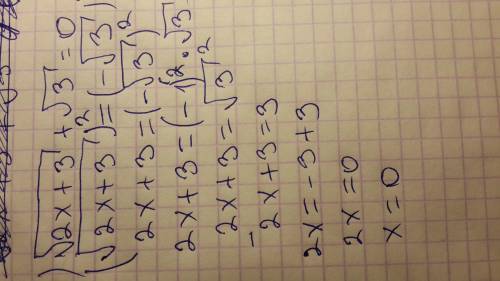 ) √2x+3 + √3 = 0
(√2x+3)² = (-√3)²
2x+3 = (-√3)²
2x+3 = (-1)² · √3²
2x+3 = √3²
2x+3 = 3
2x = -3+3
2x = 0
x = 0